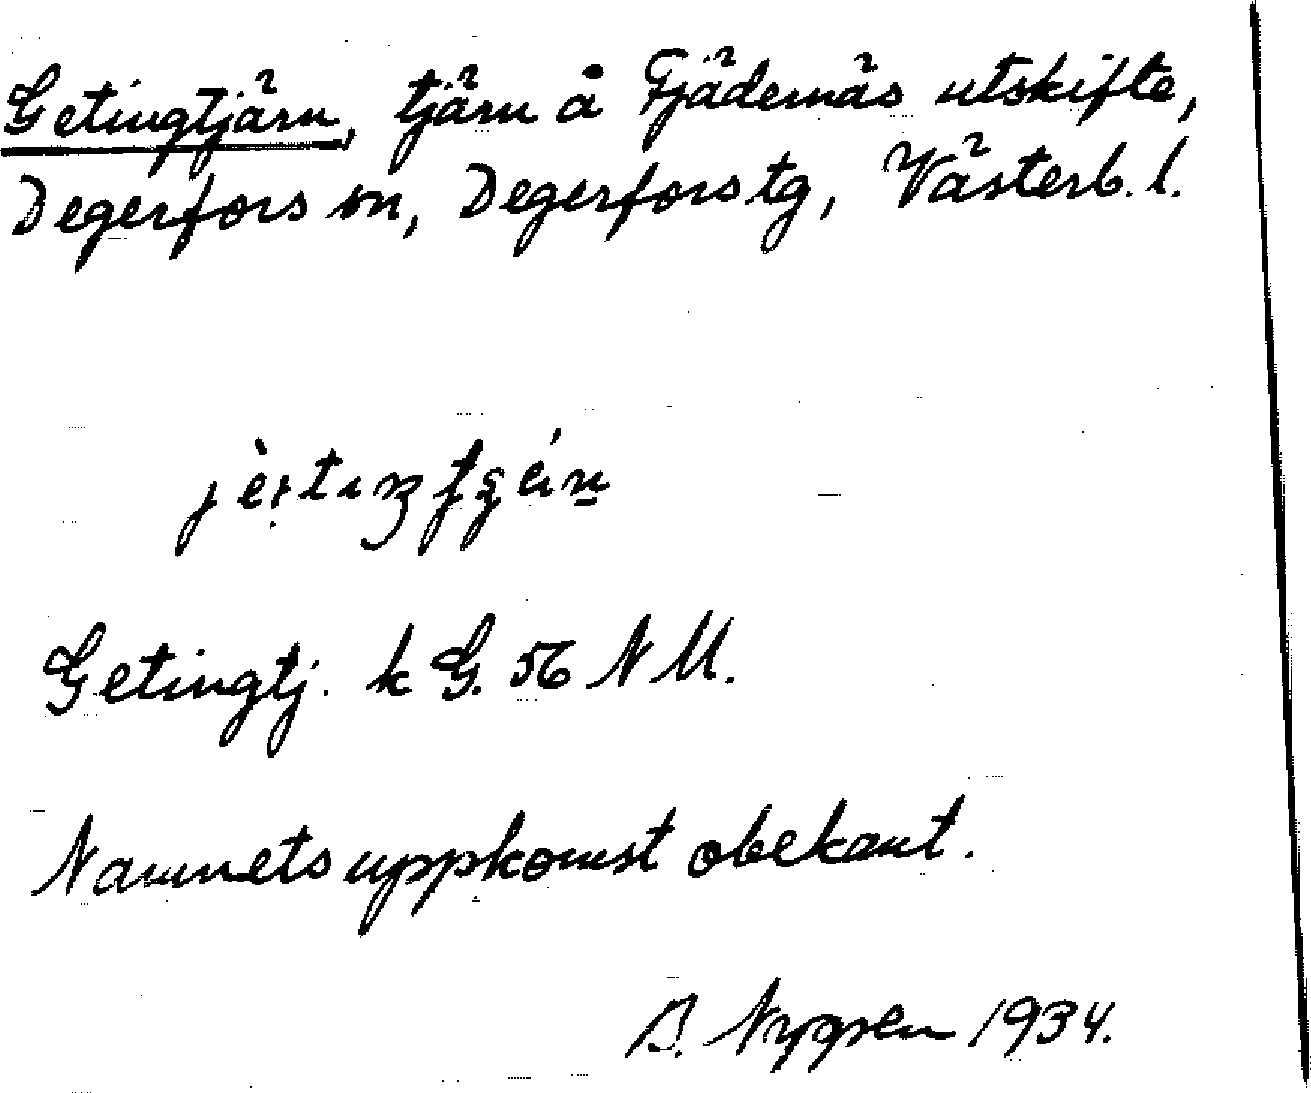 Getingtjärn, tjärn å Fjädernäs utskifte,
Degerfors sn, Degerfors tg, Västerb. l.
Getingtj. k G. 56 N M.
Namnets uppkomst obekant.
B. Nygren 1934.